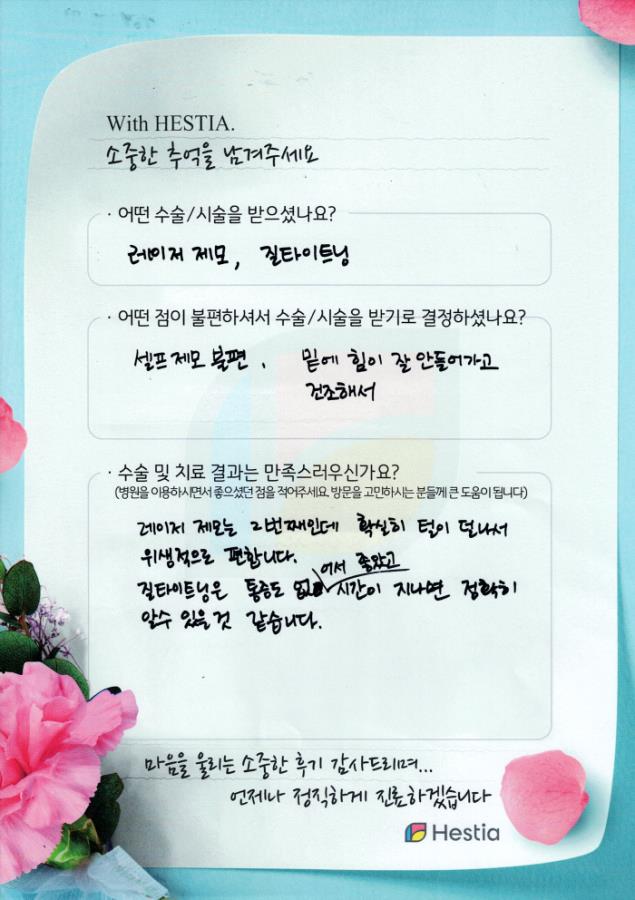 With HESTIA.
소중한 추억을 남겨주세요
· 어떤 수술/시술을 받으셨나요?
레이저 제모, 질타이트닝
· 어떤 점이 불편하셔서 수술/시술을 받기로 결정하셨나요?
셀프제모 불편. 밑에 힘이 잘 안들어가고
건조해서
· 수술 및 치료 결과는 만족스러우신가요?
(병원을 이용하시면서 좋으셨던 점을 적어주세요. 방문을 고민하시는 분들께 큰 도움이 됩니다)
레이저 제모는 2번째인데 확실히 털이 덜나서
위생적으로 편합니다.
어서 좋았고
질타이트닝은 통증도 없 시간이 지나면 정확히
알수 있을것 같습니다.
마음을 울리는 소중한 후기 감사드리며...
언제나 정직하게 진료하겠습니다
Hestia